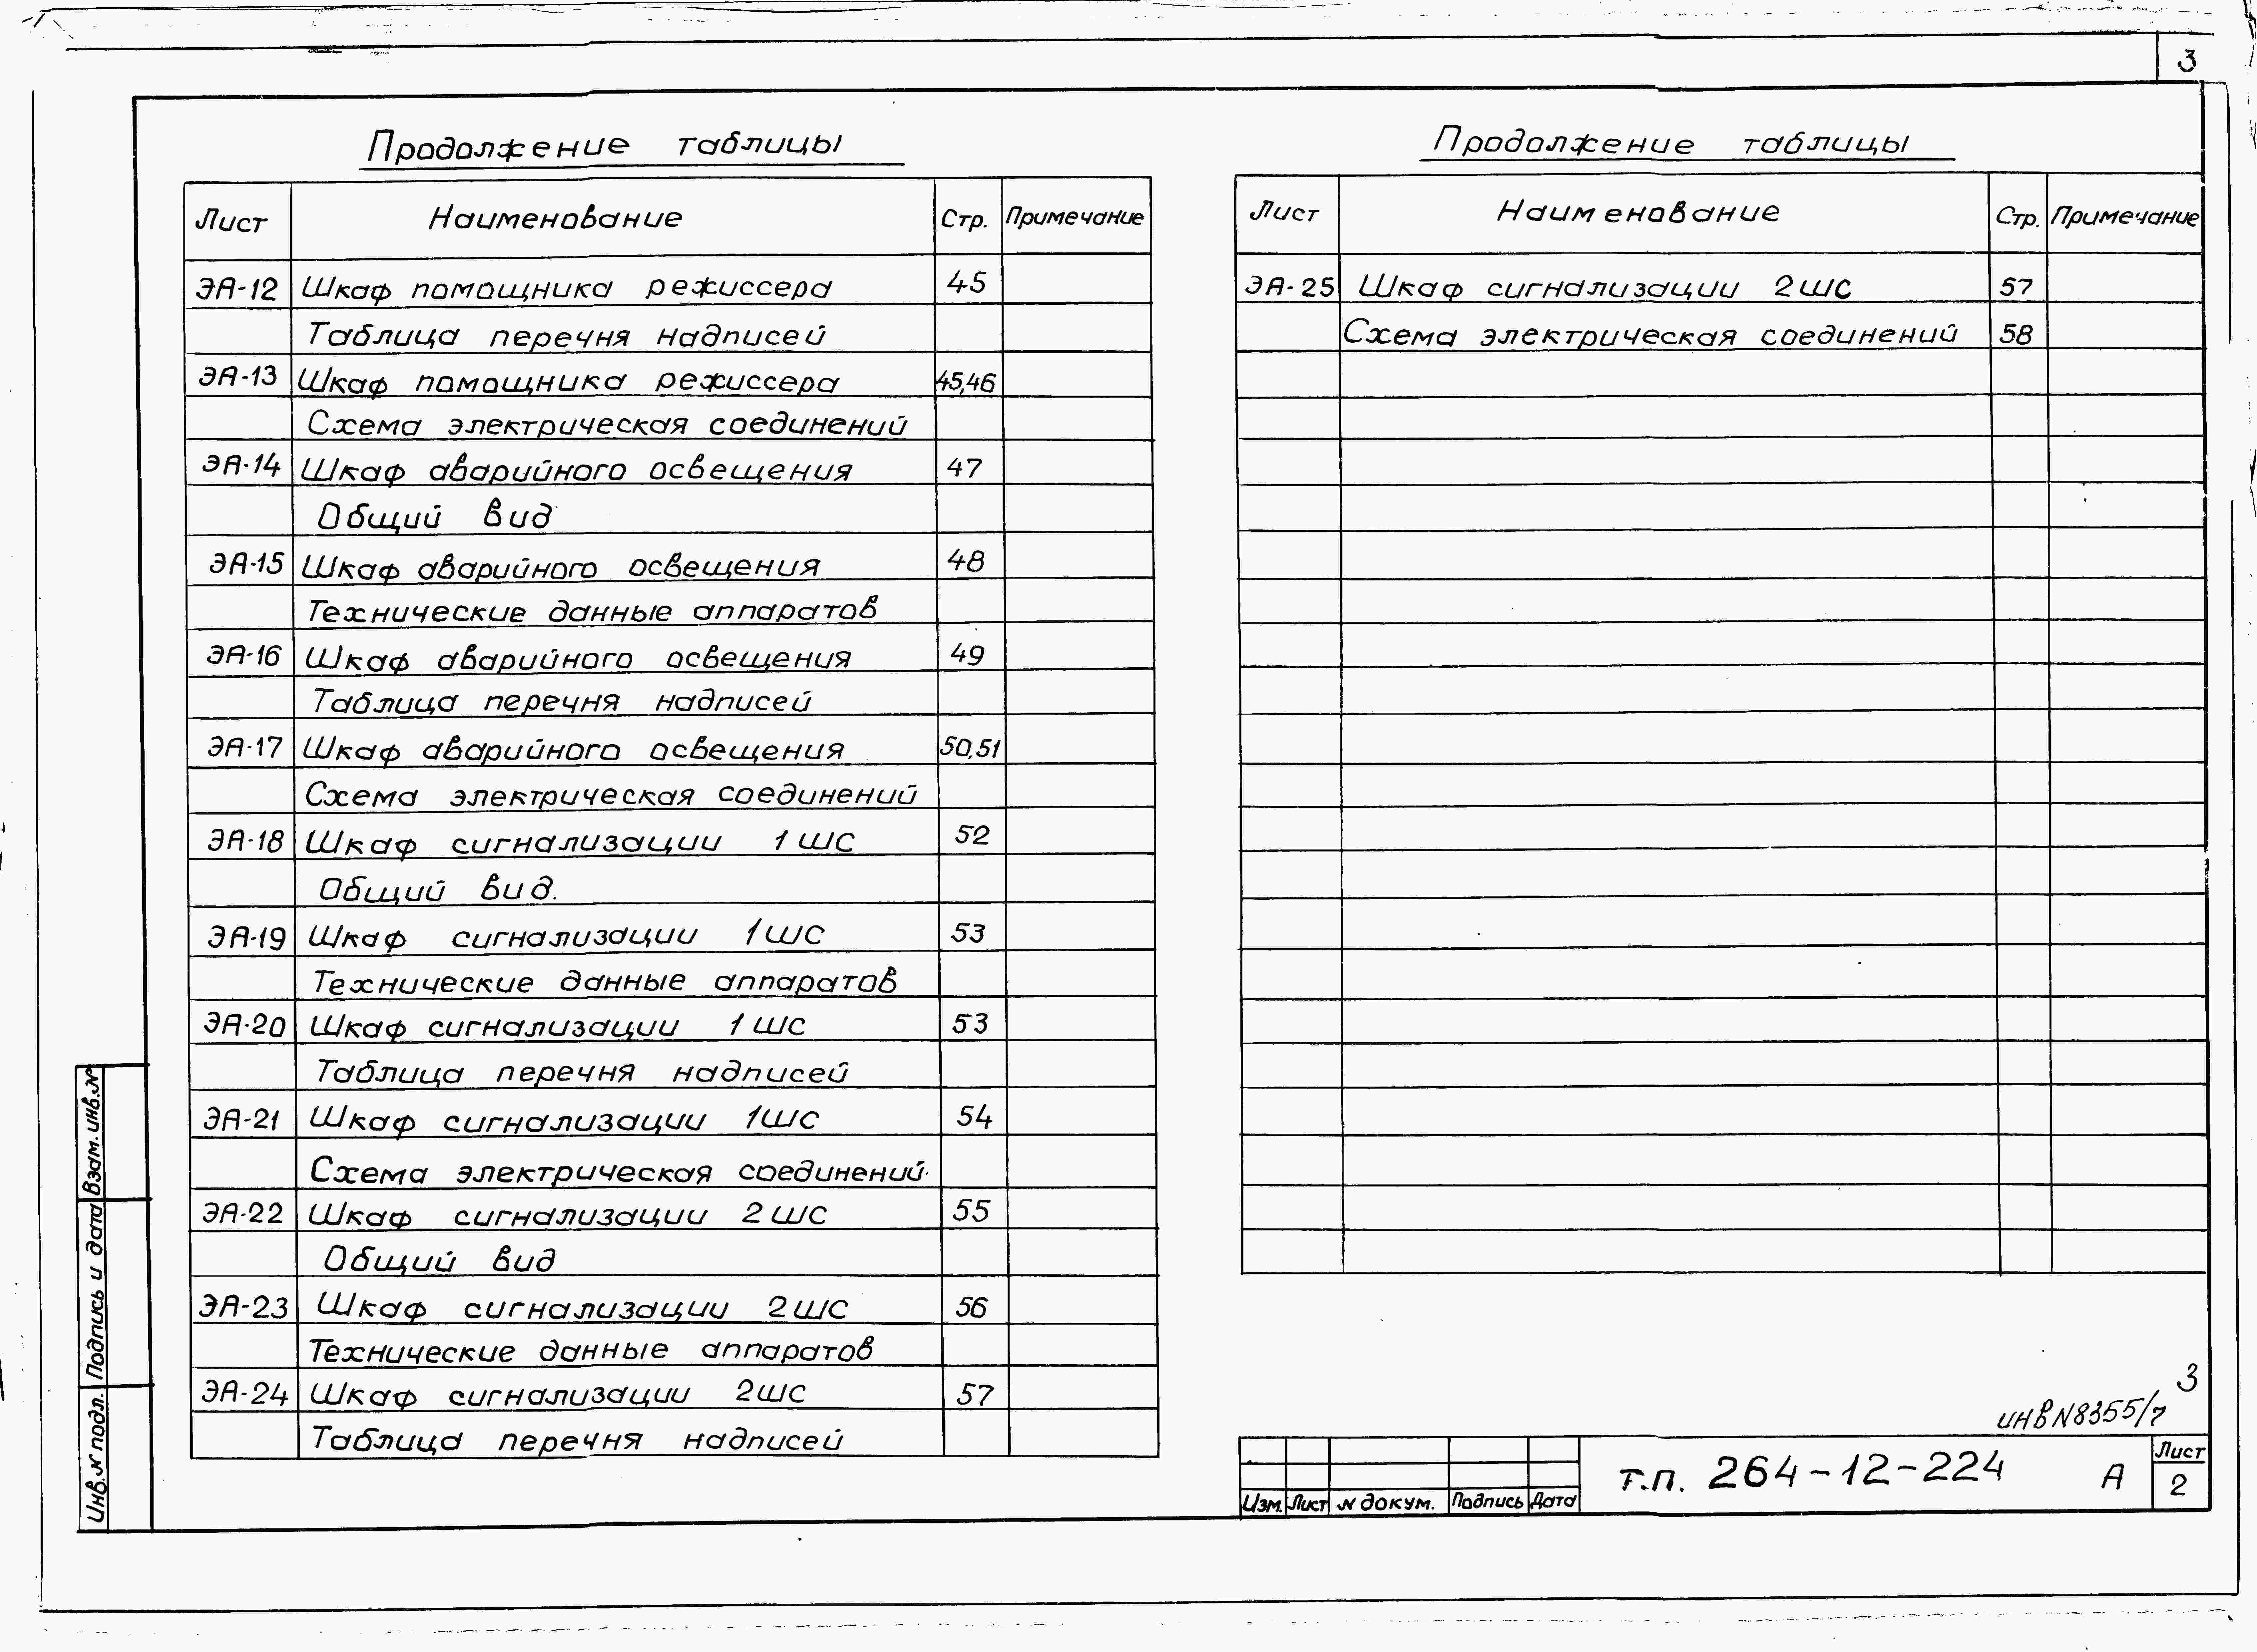 3
Продолжение таблицы
Лист Наименование Стр. Примечание
ЭА-12 Шкаф помощника режиссера 45
Таблица перечня надписей
ЭА-13 Шкаф помощника режиссера 45,46
Схема электрическая соединений
ЭА-14 Шкаф аварийного освещения 47
Общий вид
ЭА-15 Шкаф аварийного освещения 48
Технические данные аппаратов
ЭА-16 Шкаф аварийного освещения 49
Таблица перечня надписей
ЭА-17 Шкаф аварийного освещения 50,51
Схема электрическая соединений
ЭА-18 Шкаф сигнализации 1 ШС 52
Общий вид.
ЭА-19 Шкаф сигнализации 1ШС 53
Технические данные аппаратов
ЭА-20 Шкаф сигнализации 1 ШС 53
Таблица перечня надписей
ЭА-21 Шкаф сигнализации 1ШС 54
Схема электрическая соединений
ЭА-22 Шкаф сигнализации 2 ШС 55
Общий вид
ЭА-23 Шкаф сигнализации 2ШС 56
Технические данные аппаратов
ЭА-24 Шкаф сигнализации 2ШС 57
Таблица перечня надписей
Продолжение таблицы
Лист Наименование Стр. Примечание
ЭА-25 Шкаф сигнализации 2ШС 57
Схема электрическая соединений 58
3
инв N8355/7
т.п. 264-12-224 А
Лист
2
Изм. Лист N докум. Подпись Дата
Взам. инв. N
Подпись и дата
Инв. N подл.